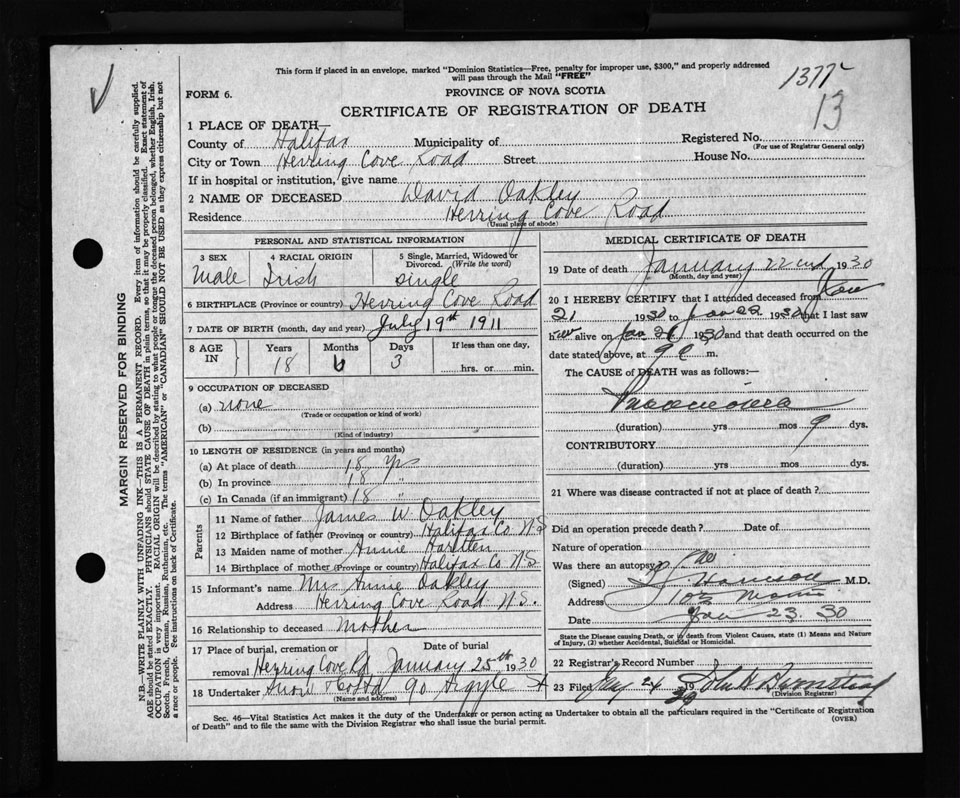 This form if placed in an envelope, marked "Dominion Statistics—Free, penalty for improper use, $300," and properly addressed
will pass through the Mail "FREE"
1377
13
FORM 6.
PROVINCE OF NOVA SCOTIA
CERTIFICATE OF REGISTRATION OF DEATH
1 PLACE OF DEATH—
County of Halifax Municipality of Registered No.
(For use of Registrar General only)
City or Town Herring Cove Road Street House No.
If in hospital or institution, give name
2 NAME OF DECEASED David Oakley
Residence Herring Cove Road
(Usual place of abode)
PERSONAL AND STATISTICAL INFORMATION
3 SEX 4 RACIAL ORIGIN 5 Single, Married, Widowed or Divorced. (Write the word)
Male Irish Single
6 BIRTHPLACE (Province or country) Herring Cove Road
7 DATE OF BIRTH (month, day and year) July 19th 1911
8 AGE IN Years Months Days If less than one day,
18 6 3 hrs. or min.
9 OCCUPATION OF DECEASED
(a) none
(Trade or occupation or kind of work)
(b)
(Kind of industry)
10 LENGTH OF RESIDENCE (in years and months)
(a) At place of death 18 yrs
(b) In province 18 "
(c) In Canada (if an immigrant) 18 "
Parents
11 Name of father James W. Oakley
12 Birthplace of father (Province or country) Halifax Co N.S
13 Maiden name of mother Annie
14 Birthplace of mother (Province or country) Halifax Co N.S
15 Informant's name Mrs Annie Oakley
Address Herring Cove Road N.S.
16 Relationship to deceased Mother
17 Place of burial, cremation or removal Date of burial
Herring Cove Rd January 25th 1930
18 Undertaker Snow & Co Ltd 90 Argyle St
(Name and address)
MEDICAL CERTIFICATE OF DEATH
19 Date of death January 22nd 1930
(Month, day and year)
20 I HEREBY CERTIFY that I attended deceased from Jan
21 1930 to Jan 22 1930 that I last saw
him alive on Jan 21 1930 and that death occurred on
date stated above, at 9 m.
The CAUSE of DEATH was as follows:—
Pneumonia
(duration) yrs mos 9 dys.
CONTRIBUTORY
(duration) yrs mos dys.
21 Where was disease contracted if not at place of death?
Did an operation precede death? Date of
Nature of operation
Was there an autopsy? no
(Signed) Harrison M.D.
Address
Date Jan 23. 30
State the Disease causing Death, or in death from Violent Causes, state (1) Means and Nature
of Injury, (2) whether Accidental, Suicidal or Homicidal.
22 Registrar's Record Number
23 Filed 24 19 John
(Division Registrar)
Sec. 46—Vital Statistics Act makes it the duty of the Undertaker or person acting as Undertaker to obtain all the particulars required in the "Certificate of Registration
of Death" and to file the same with the Division Registrar who shall issue the burial permit.
(OVER)
MARGIN RESERVED FOR BINDING
N.B.—WRITE PLAINLY WITH UNFADING INK—THIS IS A PERMANENT RECORD. Every item of information should be carefully supplied.
AGE should be stated EXACTLY. PHYSICIANS should STATE CAUSE OF DEATH in plain terms, so that it may be properly classified. Exact statement of
OCCUPATION is very important. RACIAL ORIGIN will be described by stating to what people or tongue the deceased person belonged, whether English, Irish,
Scotch, French, German, Russian, Ruthenian, etc. The terms "AMERICAN" or "CANADIAN" SHOULD NOT BE USED as they express citizenship but not
a race or people. See instructions on back of Certificate.